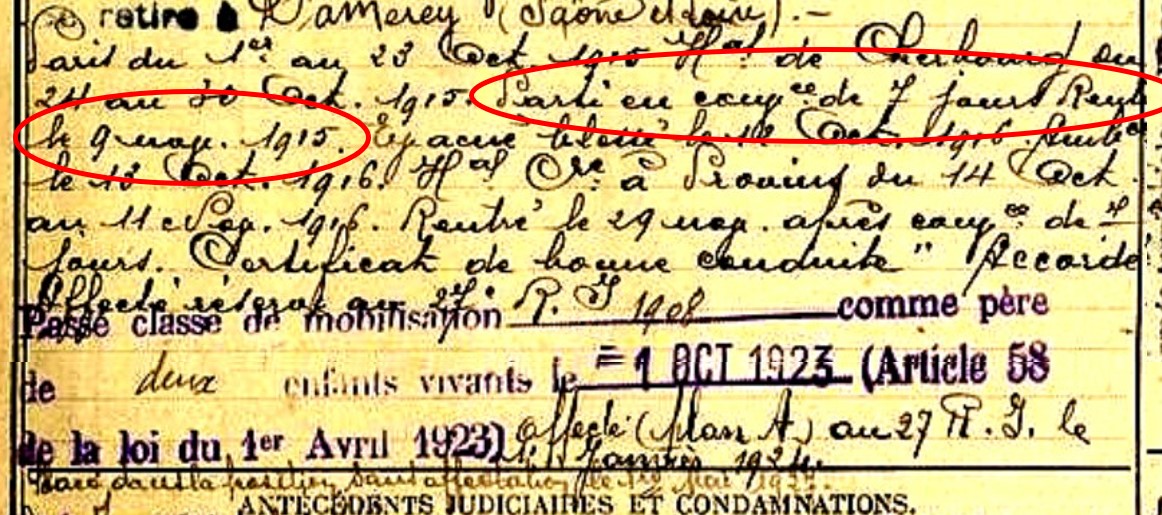 retiré à Damerey (Saône et Loire).-
Paris du 1er au 23 Oct. 1915 Hal de Cherbourg du
24 au 30 Oct. 1915. Parti en congce de 7 jours Rent
le 9 nov. 1915. Evacué blessé le 12 Oct. 1916.
le 13 Oct. 1916. Hal Cre à Provins du 14 Oct.
au 11 Nov. 1916. Rentré le 29 nov. après congce de 7
jours. Certificat de bonne conduite "Accordé
Affecté réserve au 27e R. I
Passé classe de mobilisation 1908 comme père
de deux enfants vivants le = 1 OCT 1923 (Article 58
de la loi du 1er Avril 1923) affecté (plan A) au 27 R. I. le
Janvier 1924.
Placé dans la position sans affectation le
ANTÉCÉDENTS JUDICIAIRES ET CONDAMNATIONS.